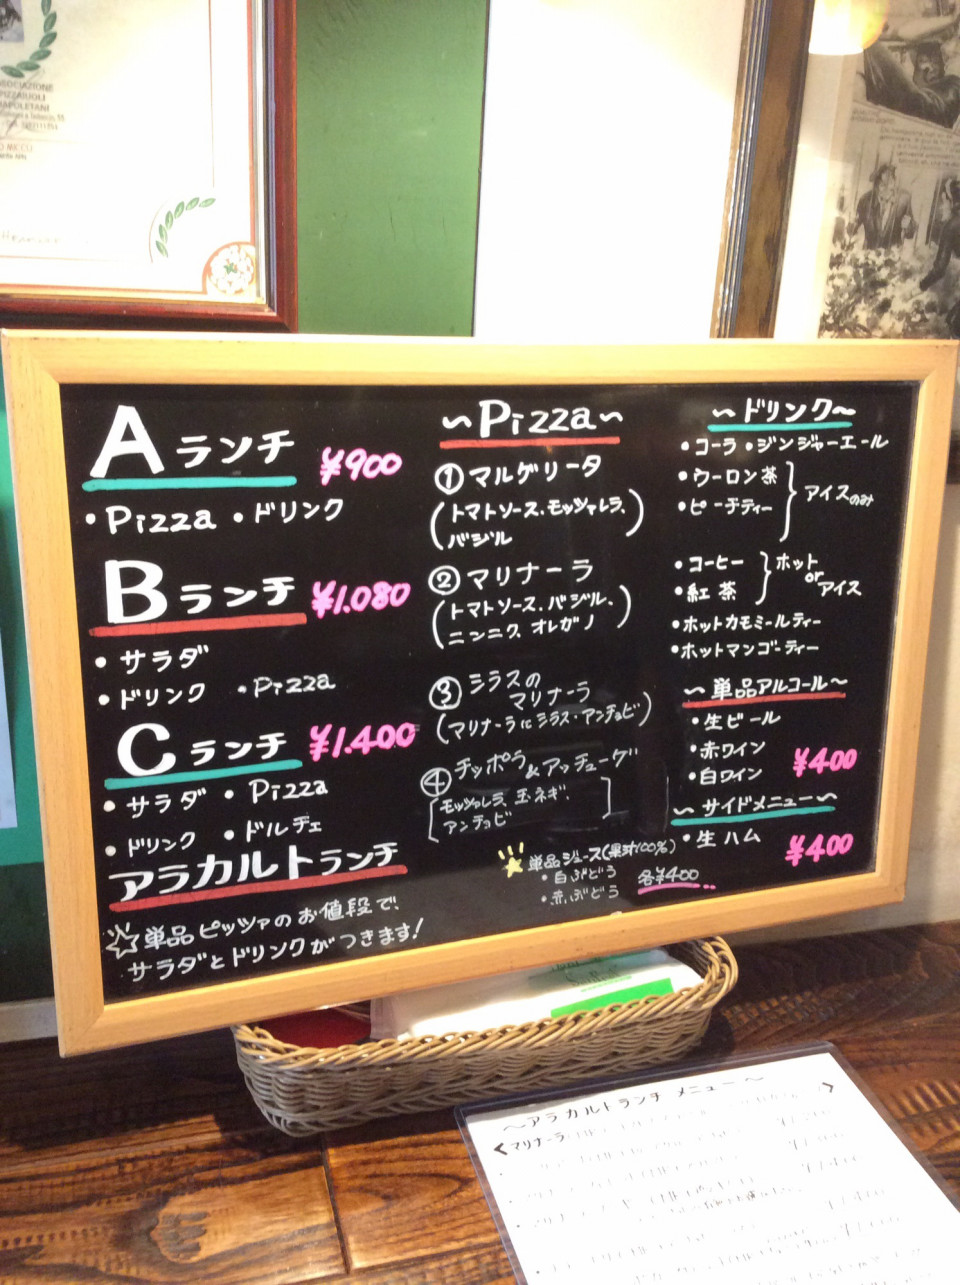 ASSOCIAZIONE
PIZZAIUOLI
NAPOLETANI
Aランチ ¥900
・Pizza ・ドリンク
Bランチ ¥1.080
・サラダ
・ドリンク ・Pizza
Cランチ ¥1.400
・サラダ ・Pizza
・ドリンク ・ドルチェ
アラカルトランチ
☆単品ピッツァのお値段で、
サラダとドリンクがつきます!
~Pizza~
①マルゲリータ
(トマトソース・モッツァレラ、
バジル)
②マリナーラ
(トマトソース、バジル、
ニンニク、オレガノ)
③シラスの
マリナーラ
(マリナーラにシラス・アンチョビ)
④チッポラ&アッチューゲ
[モッツァレラ、玉ネギ、
アンチョビ]
単品ジュース(果汁100%)
・白ぶどう 各¥400
・赤ぶどう
~ドリンク~
・コーラ・ジンジャーエール
・ウーロン茶
・ピーチティー
アイスのみ
・コーヒー
・紅茶
ホット
or
アイス
・ホットカモミールティー
・ホットマンゴーティー
~単品アルコール~
・生ビール
・赤ワイン
・白ワイン ¥400
~サイドメニュー~
・生ハム ¥400
~アラカルトランチ メニュー~
<マリナーラ